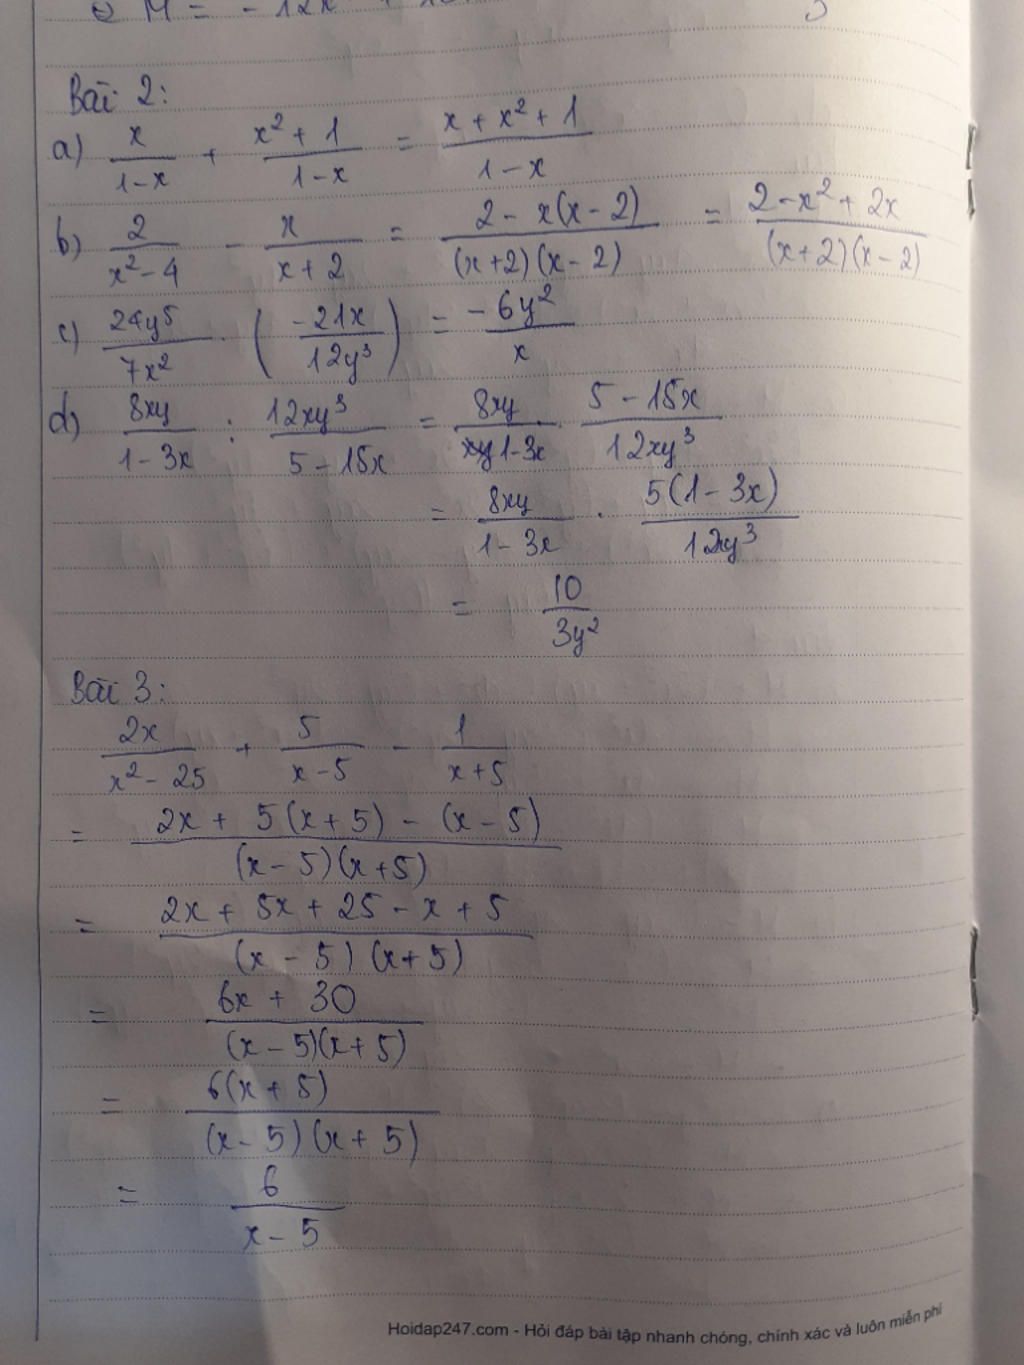 M = - 12x
Bài 2:
a) x/(1-x) + (x² + 1)/(1-x) = (x + x² + 1)/(1-x)
b) 2/(x²-4) - x/(x+2) = (2 - x(x-2))/((x+2)(x-2)) = (2-x²+2x)/((x+2)(x-2))
c) 24y⁵/7x² . (-21x/12y³) = -6y²/x
d) 8xy/(1-3x) : 12xy³/(5-15x) = 8xy/(1-3x) . (5-15x)/12xy³
= 8xy/(1-3x) . 5(1-3x)/12xy³
= 10/3y²
Bài 3:
2x/(x²-25) + 5/(x-5) - 1/(x+5)
= (2x + 5(x+5) - (x-5))/((x-5)(x+5))
= (2x + 5x + 25 - x + 5)/((x-5)(x+5))
= (6x + 30)/((x-5)(x+5))
= 6(x+5)/((x-5)(x+5))
= 6/(x-5)
Hoidap247.com - Hỏi đáp bài tập nhanh chóng, chính xác và luôn miễn phí